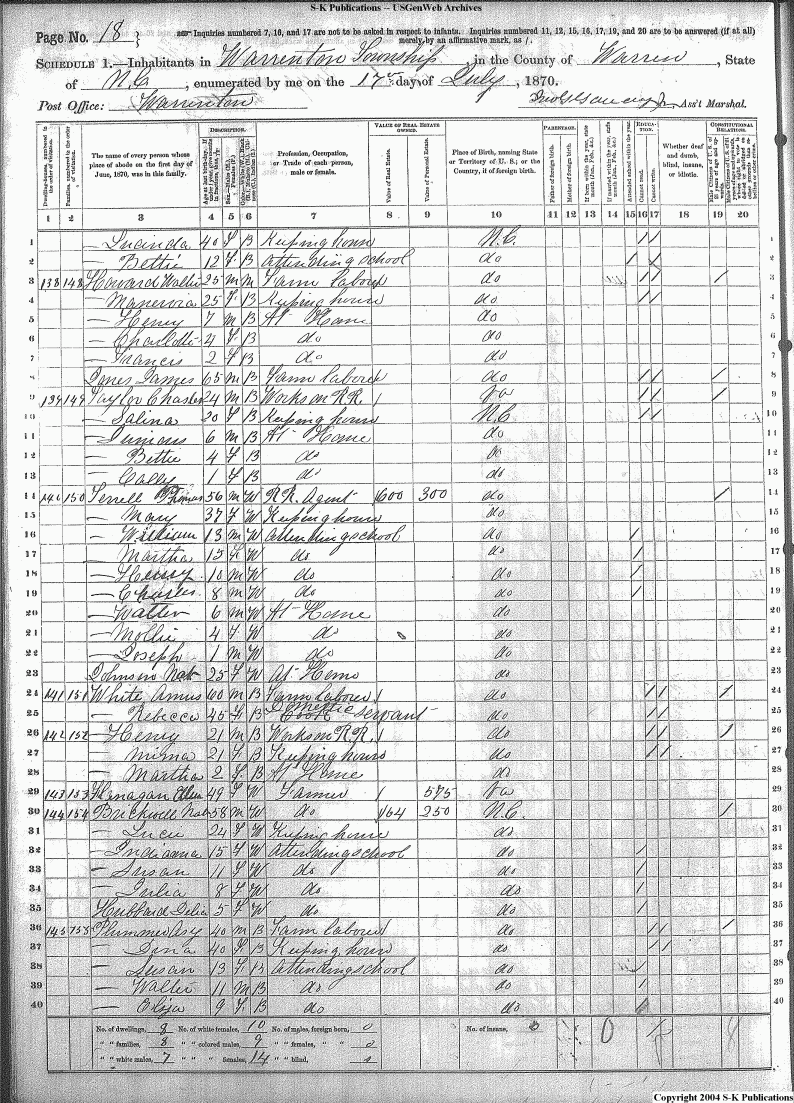 S-K Publications -- USGenWeb Archives
Page No. 18
Inquiries numbered 7, 16, and 17 are not to be asked in respect to infants. Inquiries numbered 11, 12, 15, 16, 17, 19, and 20 are to be answered (if at all) merely by an affirmative mark, as /.
SCHEDULE 1.—Inhabitants in Warrenton Township, in the County of Warren, State
of N.C., enumerated by me on the 17 day of July, 1870.
Post Office: Warrenton Ass't Marshal.
Dwelling-houses, numbered in the order of visitation.
Families, numbered in the order of visitation.
The name of every person whose place of abode on the first day of June, 1870, was in this family.
DESCRIPTION.
Profession, Occupation, or Trade of each person, male or female.
VALUE OF REAL ESTATE OWNED.
Value of Real Estate.
Value of Personal Estate.
Place of Birth, naming State or Territory of U. S.; or the Country, if of foreign birth.
PARENTAGE.
Father of foreign birth.
Mother of foreign birth.
EDUCATION.
Attended school within the year.
Cannot read.
Cannot write.
Whether deaf and dumb, blind, insane, or idiotic.
CONSTITUTIONAL RELATIONS.
1 2 3 4 5 6 7 8 9 10 11 12 13 14 15 16 17 18 19 20
1 — Lucinda 40 F B Keeping house N.C. / / 1
2 — Bettie 12 F B Attending school do / / / 2
3 138 148 Howard Wallie 25 M M Farm laborer do / / / 3
4 — Manervia 25 F B Keeping house do / / 4
5 — Henry 7 M B At Home do 5
6 — Charlotte 4 F B do do 6
7 — Francis 2 F B do do 7
8 Jones James 65 M B Farm laborer do / / / 8
9 139 149 Taylor Charles 24 M B Works on RR. Va / / / 9
10 — Salina 20 F B Keeping house N.C. / / 10
11 6 M B At Home do 11
12 — Bettie 4 F B do do 12
13 — Cally 1 F B do do 13
14 140 150 Terrell Thomas 56 M W RR. Agent 1600 300 do / 14
15 — Mary 37 F W Keeping house do 15
16 — William 13 M W Attending school do / 16
17 — Martha 15 F W do do / 17
18 — Henry 10 M W do do / 18
19 — Charles 8 M W do do / 19
20 — Walter 6 M W At Home do 20
21 — Mollie 4 F W do do 21
22 — Joseph 1 M W do do 22
23 Johnson 25 F W At Home do 23
24 141 151 White Amus 60 M B Farm laborer do / / / 24
25 — Rebecca 45 F B Domestic servant do / / 25
26 142 152 — Henry 21 M B Works on RR. do / / / 26
27 — 21 F B Keeping house do / / 27
28 — Martha 2 F B At Home do 28
29 143 153 Flanagan Ellen 49 F W Farmer 575 Va 29
30 144 154 58 M W do 164 250 N.C. / 30
31 — Lucie 24 F W Keeping house do 31
32 — Indianna 15 F W Attending school do / 32
33 — Susan 11 F W do do / 33
34 — Julia 8 F W do do / 34
35 Hubbard Delia 5 F W do do / 35
36 145 155 Plummer 40 M B Farm laborer do / / / 36
37 — 40 F B Keeping house do / / 37
38 — Susan 13 F B Attending school do / / 38
39 — Walter 11 M B do do / 39
40 — Oliza 9 F B do do / 40
No. of dwellings, 8 No. of white females, 10 No. of males, foreign born, 0 No. of insane, 0
" " families, 8 " " colored males, 9 " " females, " " 0
" " white males, 7 " " " females, 14 " " blind, 0
Copyright 2004 S-K Publications